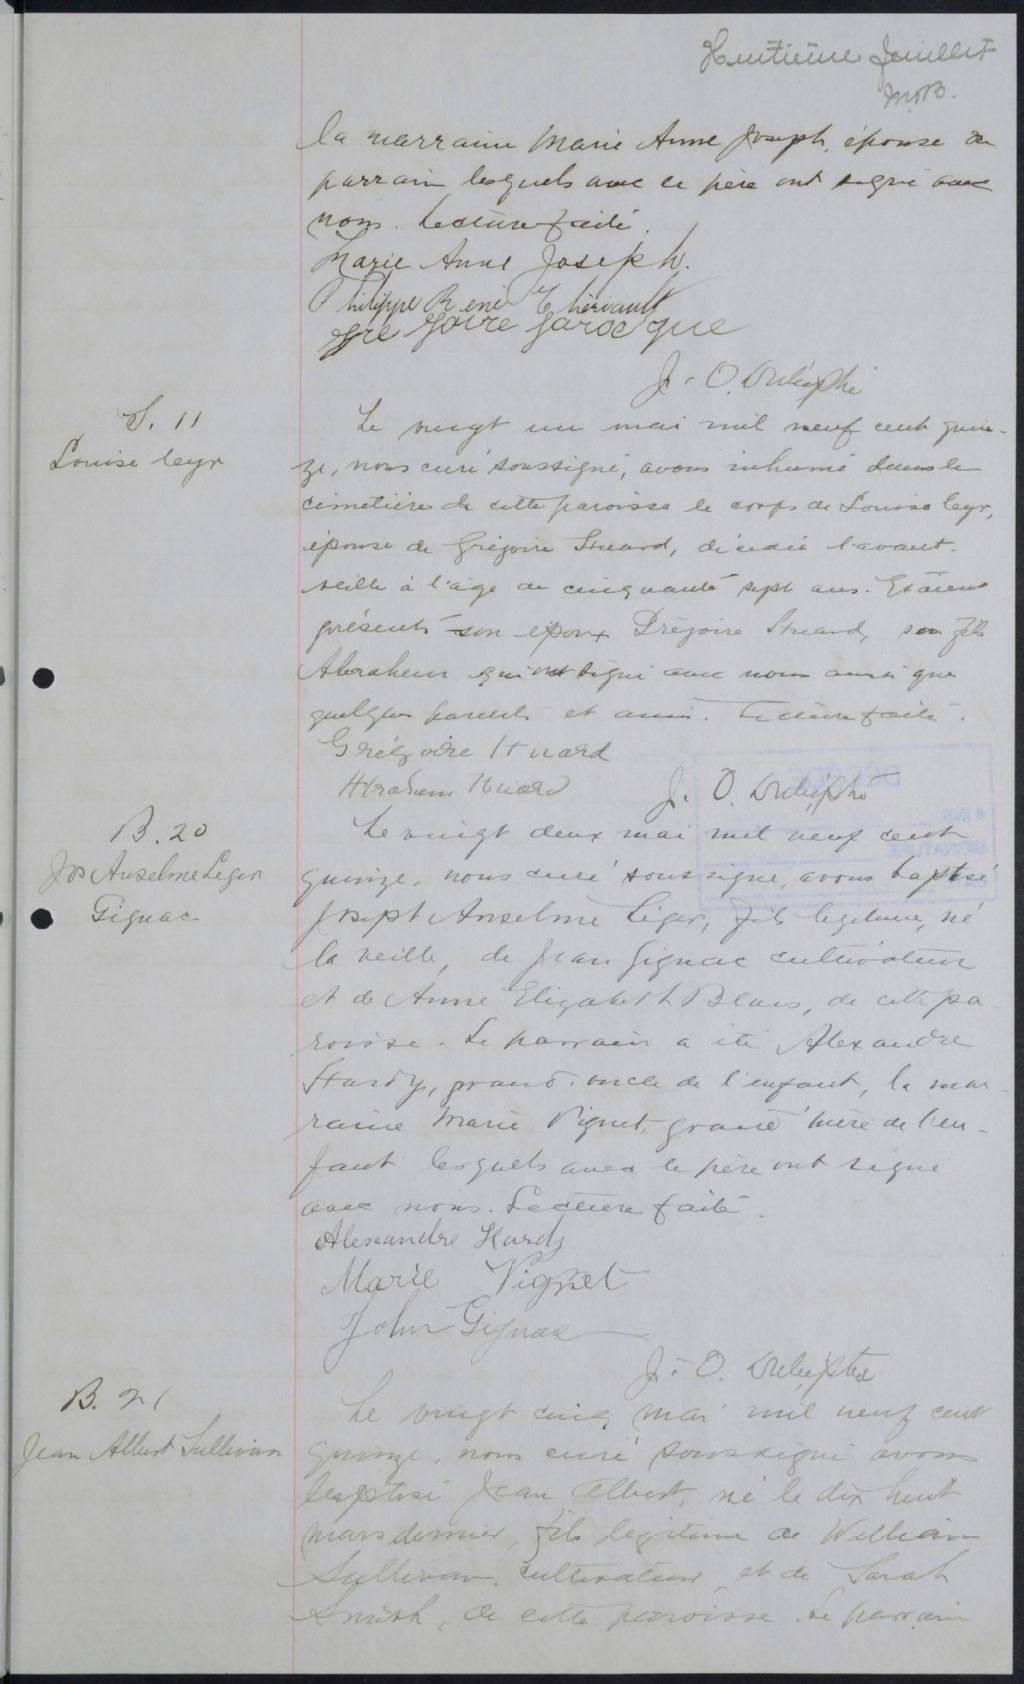 Huitième Juillet
M.B.
la marraine Marie Anne Joseph, épouse du
parrain lesquels avec le père ont signé avec
nous. Lecture faite.
Marie Anne Joseph.
Philippe René Thériault
Gregoire Larocque
J. O.
S. 11
Louise Cyr
Le vingt un mai mil neuf cent quin-
ze, nous curé soussigné, avons inhumé dans le
cimetière de cette paroisse le corps de Louise Cyr,
épouse de Grégoire Huard, décédée l'avant-
veille à l'âge de cinquante sept ans. Etaient
présents son époux Grégoire Huard, son fils
Abraham qui ont signé avec nous ainsi que
quelques parents et amis. Lecture faite.
Grégoire Huard
Abraham Huard
J. O.
B. 20
Jos Anselme Léger
Gignac
Le vingt deux mai mil neuf cent
quinze, nous curé soussigné, avons baptisé
Joseph Anselme Léger, fils légitime, né
la veille, de Jean Gignac cultivateur
et de Anne Elizabeth Blais, de cette pa-
roisse. Le parrain a été Alexandre
Hardy, grand-oncle de l'enfant, la mar-
raine Marie Vignet, grand'mère de l'en-
fant lesquels avec le père ont signé
avec nous. Lecture faite.
Alexandre Hardy
Marie Vignet
John Gignac
J. O.
B. 21
Jean Albert Sullivan
Le vingt cinq mai mil neuf cent
quinze, nous curé soussigné avons
baptisé Jean Albert, né le dix huit
mars dernier, fils légitime de William
Sullivan, cultivateur et de Sarah
Smith, de cette paroisse. Le parrain